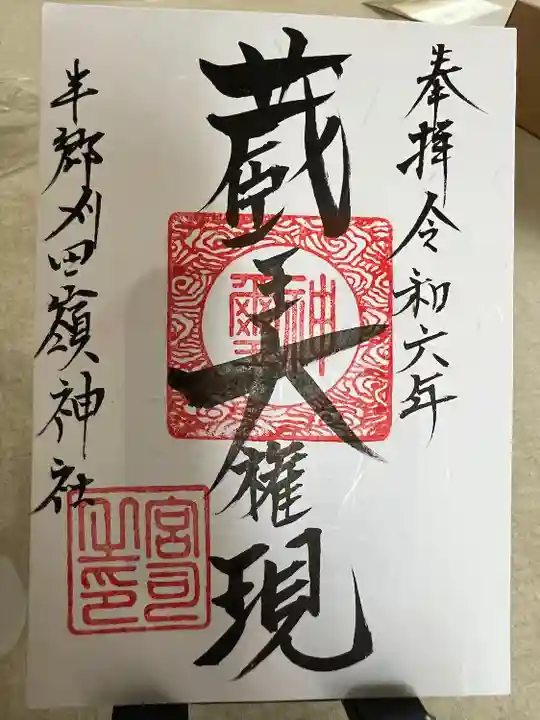 奉拝令和六年
蔵王大権現
半郷刈田嶺神社
神璽
宮司之印